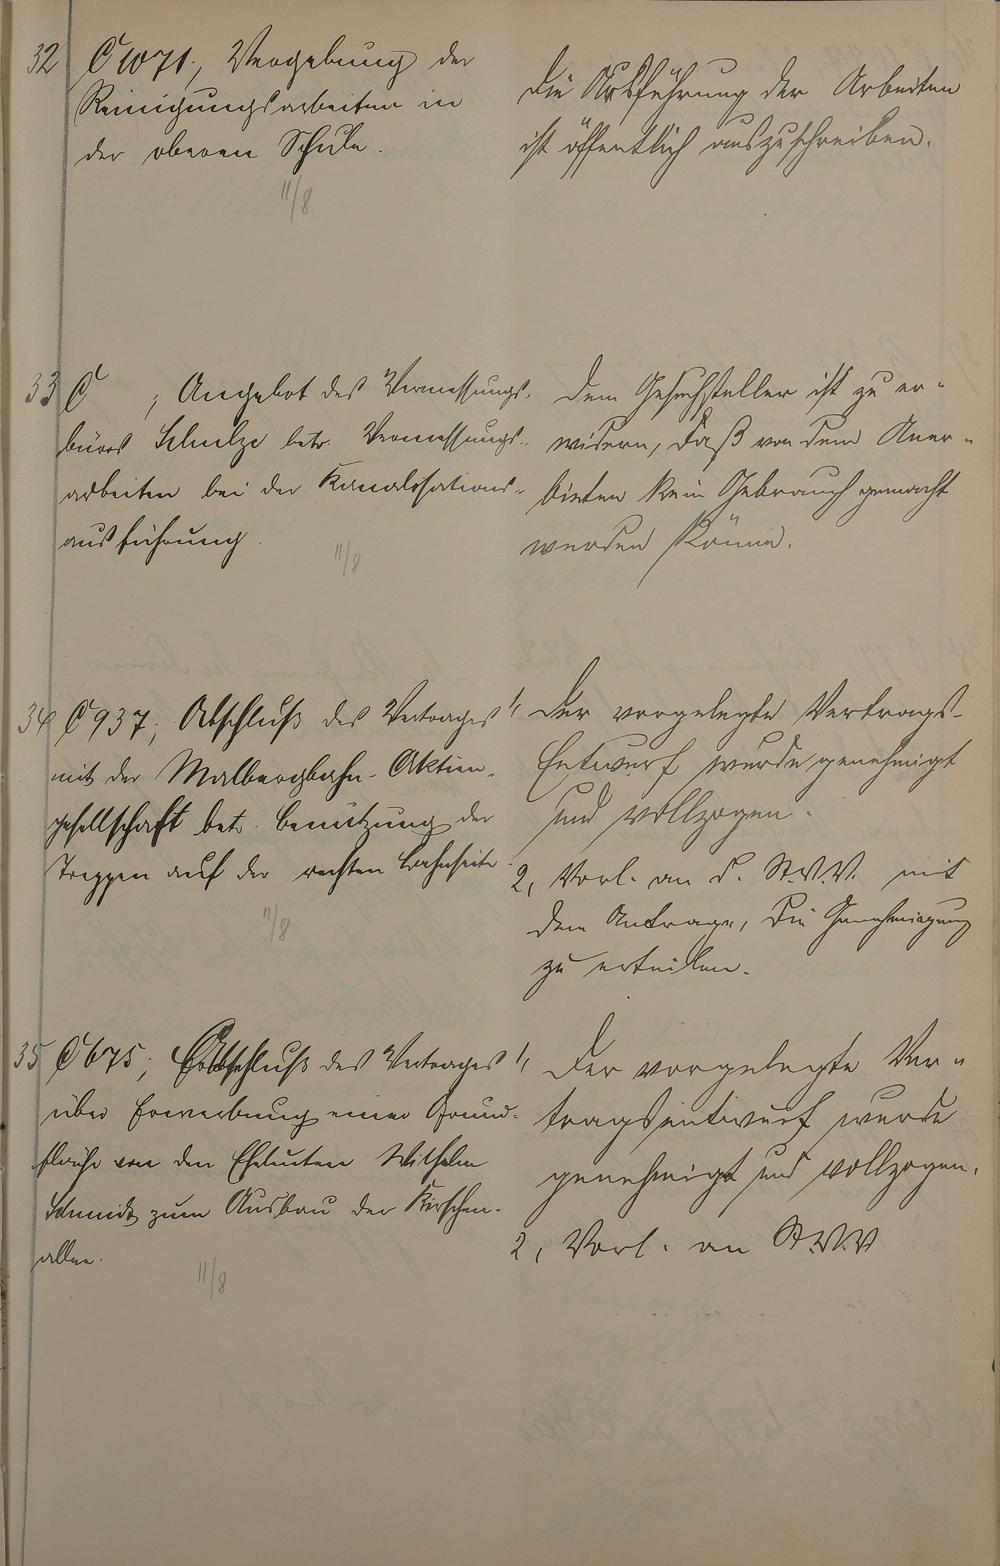 32 C 1071, Vergebung der
Reinigungsarbeiten in
der oberen Schule.
11/8
Die Ausführung der Arbeiten
ist öffentlich auszuschreiben.
33 C ; Angebot des Vermessungs-
büros Schulze betr. Vermessungs-
arbeiten bei der Kanalisations-
ausführung.
11/8
Dem Gesuchsteller ist zu er-
widern, daß von dem Aner-
bieten kein Gebrauch gemacht
werden könne.
34 C 937; Abschluß des Vertrages
mit der Malbergbahn-Aktien-
gesellschaft betr. Benützung der
Treppen auf der rechten Bahnseite.
11/8
1, Der vorgelegte Vertrags-
Entwurf wurde genehmigt
und vollzogen.
2, Vorl. an d. St.V.V. mit
dem Antrage, die Genehmigung
zu erteilen.
35 C 675; Abschluß des Vertrages
über Erwerbung einer Grund-
fläche von den Eheleuten Wilhelm
Schmidt zum Ausbau der Kirschen-
allee.
11/8
1, Der vorgelegte Ver-
tragsentwurf wurde
genehmigt und vollzogen.
2, Vorl. an St.V.V